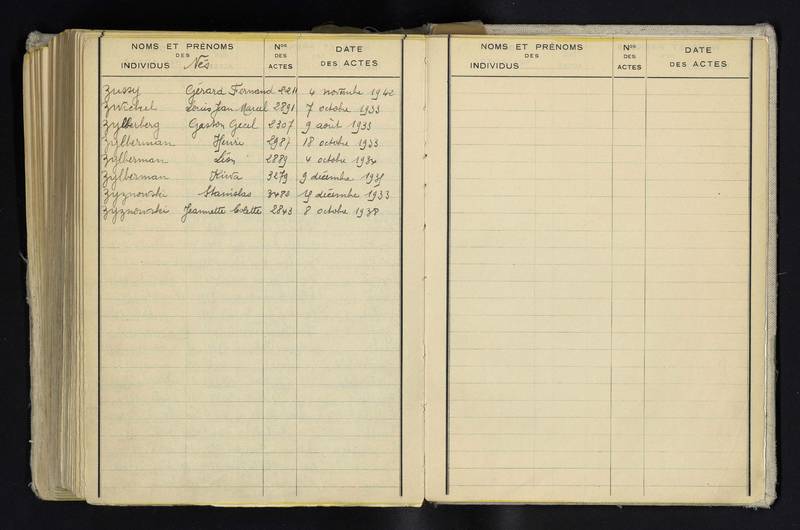 NOMS ET PRÉNOMS DES INDIVIDUS Nés Nos DES ACTES DATE DES ACTES
Zussy Gérard Fernand 2211 4 novembre 1942
Zwickel Louis Jean Marcel 2891 7 octobre 1933
Zylberberg Gaston Cecil 2307 9 août 1933
Zylberman Henri 2987 18 octobre 1933
Zylberman Léon 2889 4 octobre 1934
Zylberman Kiwa 3279 9 décembre
Zyznowski Stanislas décembre 1933
Zyznowski Jeannette Colette 2843 8 octobre 1938
NOMS ET PRÉNOMS DES INDIVIDUS Nos DES ACTES DATE DES ACTES